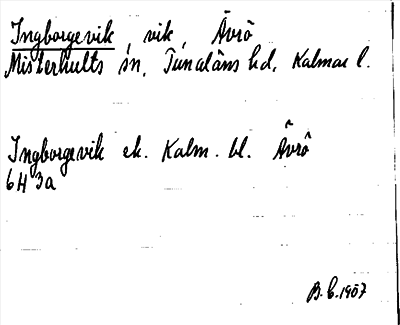 Ingborgevik, vik, Ävrö
Misterhults sn, Tunaläns hd, Kalmar l.
Ingborgevik ek. Kalm. bl. Ävrö
6H 3a
B.C. 1957